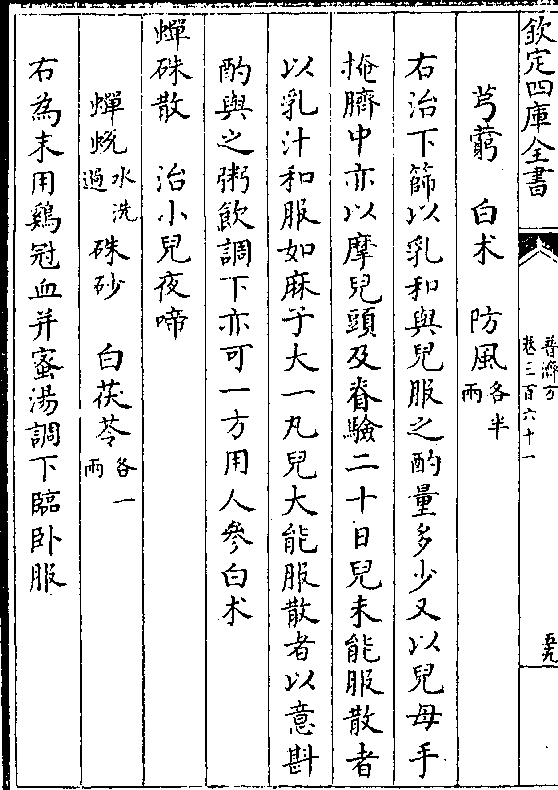 欽定四庫全書
普濟方
卷三百六十一
五九
芎藭　白术　防風各半兩
右治下篩以乳和與兒服之酌量多少又以兒母手
掩臍中亦以摩兒頭及脊驗二十日兒未能服散者
以乳汁和服如麻子大一丸兒大能服散者以意斟
酌與之粥飲調下亦可一方用人參白术
蟬硃散　治小兒夜啼
蟬蛻水洗過　硃砂　白茯苓各一兩
右為末用鷄冠血并蜜湯調下臨卧服